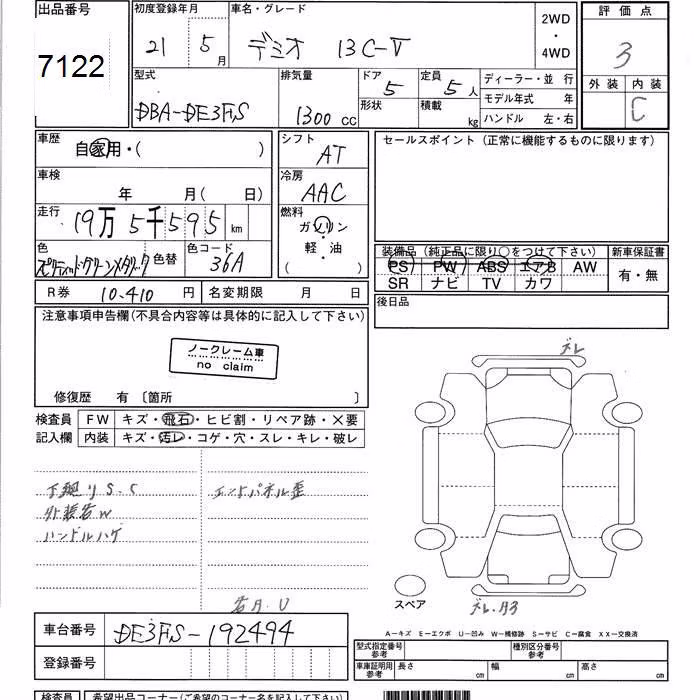 出品番号 初度登録年月 車名・グレード 2WD ・ 4WD 評価点
7122 21 5月 デミオ 13C-V 3
型式 排気量 ドア 5 定員 5人 ディーラー・並行 外装 内装
DBA-DE3FS 1300cc 形状 積載 kg モデル年式 年 C
ハンドル 左・右
車歴 自家用・( ) シフト AT セールスポイント(正常に機能するものに限ります)
車検 年 月( 日) 冷房 AAC
走行 19万5千595km 燃料 ガソリン 軽・油 ( )
色 スピリティッドグリーンメタリック 色替 色コード 36A
装備品(純正品に限り○をつけて下さい) 新車保証書
PS PW ABS エアB AW 有・無
SR ナビ TV カワ
R券 10.410円 名変期限 月 日 後日品
注意事項申告欄(不具合内容等は具体的に記入して下さい)
ノークレーム車
no claim
修復歴 有〔箇所 〕
ズレ
検査員 FW キズ・飛石・ヒビ割・リペア跡・×要
記入欄 内装 キズ・汚レ・コゲ・穴・スレ・キレ・破レ
下廻りS.C エンドパネル歪
外装各W
ハンドルハゲ
各A.U
スペア
ズレ.A3
車台番号 DE3FS-192494
A-キズ E-エクボ U-凹み W-補修跡 S-サビ C-腐食 XX-交換済
登録番号 型式指定番号 参考 種別区分番号 参考
車庫証明用 参考 長さ cm 幅 cm 高さ cm
検査員 希望出品コーナー(ご希望のコーナー名を記入して下さい)